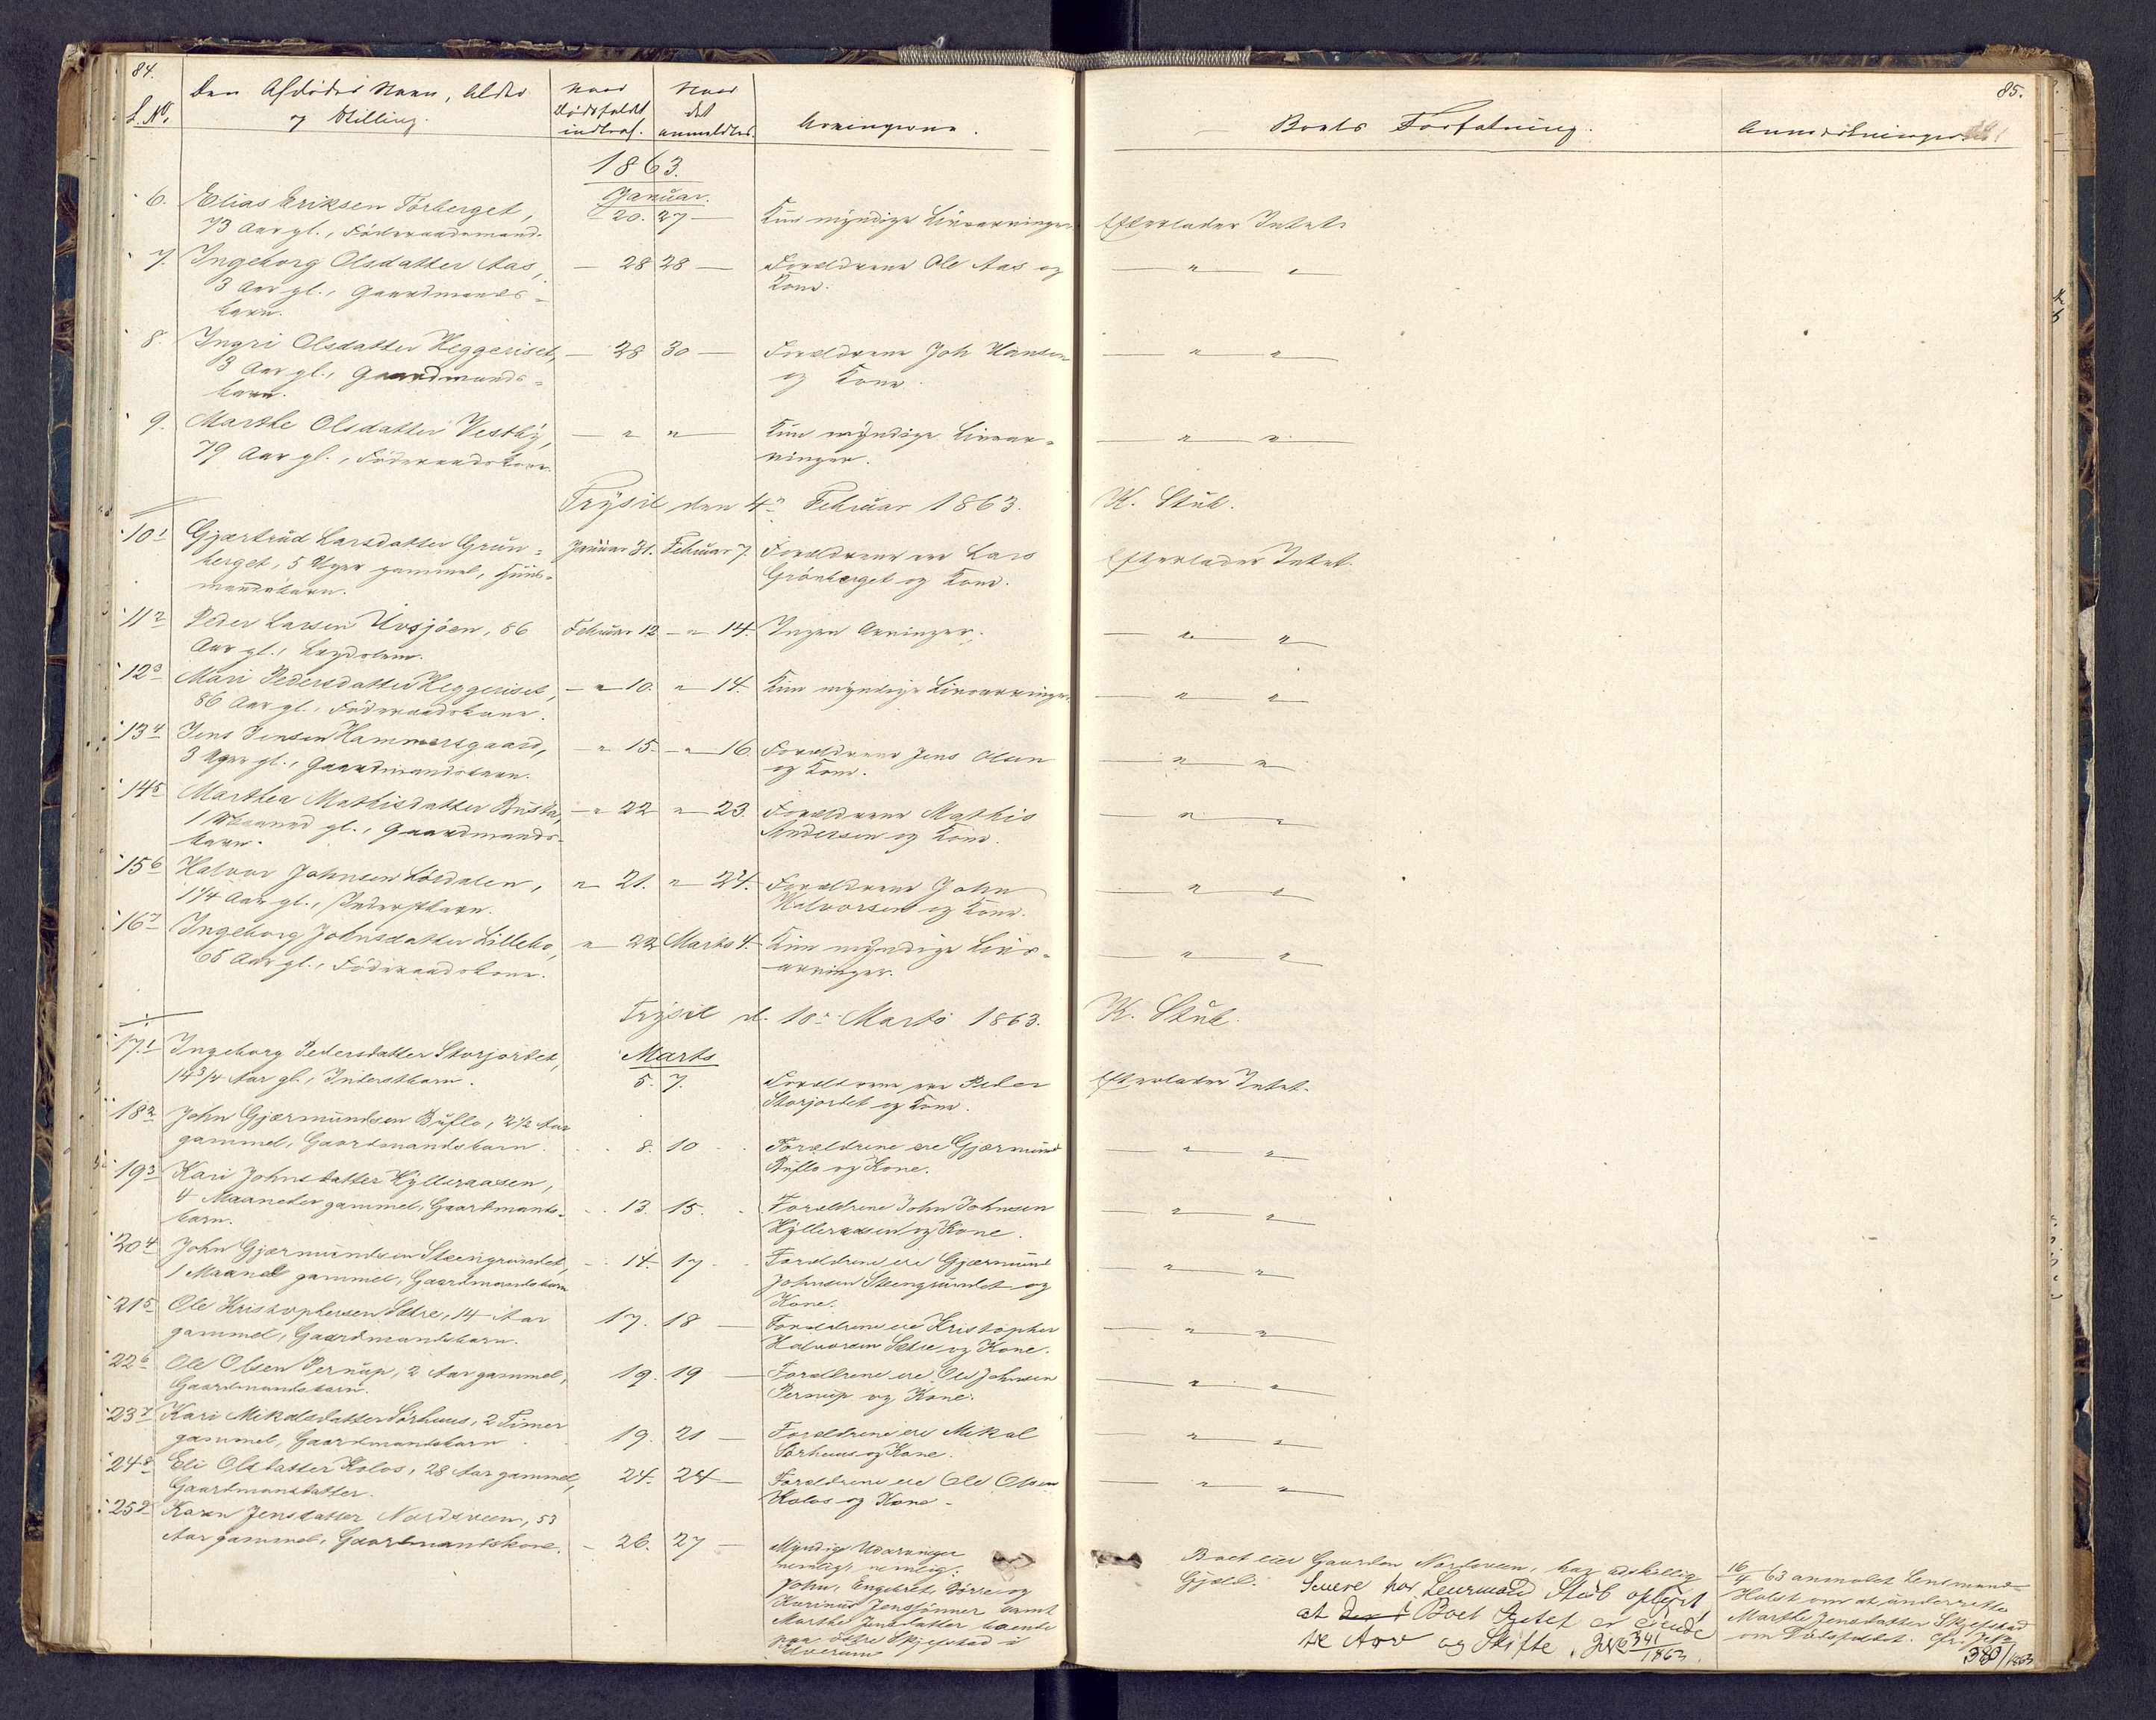 84.
L. No.
Den Afdødes Navn, Alder
og Stilling.
Naar
Dødsfaldet
indtraf.
Naar
det
anmeldtes.
Arvingerne.
1863.
Januar.
6. Elias Eriksen Törberget,
73 Aar gl., Föderaadsmand.
20. 27 —
Kun myndige Livsarvinger
7. Ingeborg Olsdatter Aas,
3 Aar gl., Gaardmands-
barn.
— 28 28 —
Forældrene Ole Aas og
Kone.
8. Ingri Olsdatter Heggeriset,
3 Aar gl., Gaardmands-
barn.
— 28 30 —
Forældrene Joh Hansen
og Kone.
9. Marthe Olsdatter Vestby,
79 Aar gl., Föderaadskone.
— " " —
Kun myndige Livsar-
vinger.
Trysil den 4de Februar 1863.
10 1 Gjærtrud Larsdatter Grøn-
berget, 5 Uger gammel, Huus-
mandsbarn.
Januar 31. Februar 7.
Forældrene ere Lars
Grönberget og Kone.
11 2 Peder Larsen Ursjöen, 86
Aar gl., Lægdslem.
Februar 12 — " 14.
Ingen Arvinger.
12 3 Mari Pedersdatter Heggeriset,
86 Aar gl., Föderaadskone.
— " 10. " 14.
Kun myndige Livsarvinger
13 4 Jens Jensen Hammersgaard,
3 Uger gl., Gaardmandsbarn.
— " 15. — " 16.
Forældrene Jens Olsen
og Kone.
14 5 Marthea Mathisdatter Buska,
1 Maaned gl., Gaardmands-
barn.
— " 22 " 23.
Forældrene Mathis
Andersen og Kone.
15 6 Halvor Johnsen Lördalen,
1 1/4 Aar gl., Inderstbarn.
" 21. " 24.
Forældrene John
Halvorsen og Kone.
16 7 Ingeborg Johnsdatter Lillebo,
65 Aar gl., Föderaadskone.
" 22 Marts 4.
Kun myndige Livs-
arvinger.
Trysil d. 10de Marts 1863.
17. 1 Ingeborg Pedersdatter Storjordet,
14 3/4 Aar gl., Inderstbarn.
Marts
5. 7.
Forældrene ere Peder
Storjordet og Kone.
18 2 John Gjærmundsen Buflo, 2 1/2 Aar
gammel, Gaardmandsbarn.
8. 10
Forældrene ere Gjærmund
Buflo og Kone.
19 3 Kari Johnsdatter Hylleraasen,
4 Maaneder gammel, Gaardmands-
barn.
13. 15.
Forældrene John Johnsen
Hylleraasen og Kone.
20 4 John Gjærmundsen Steengrundet,
1 Maaned gammel, Gaardmandsbarn
14. 17
Forældrene ere Gjærmund
Johnsen Steengrundet og
Kone.
21 5 Ole Kristophersen Sætre, 14 Aar
gammel, Gaardmandsbarn.
17. 18 —
Forældrene ere Kristopher
Halvorsen Sætre og Kone.
22 6 Ole Olsen Pernup, 2 Aar gammel,
Gaardmandsbarn.
19. 19 —
Forældrene ere Ole Johnsen
Pernup og Kone.
23 7 Kari Mikalsdatter Sörhuus, 2 Timer
gammel, Gaardmandsbarn
19. 21 —
Forældrene ere Mikal
Sörhuus og Kone.
24 8 Eli Olsdatter Kolos, 28 Aar gammel,
Gaardmansdatter.
24. 24 —
Forældrene ere Ole Olsen
Kolos og Kone.
25 9 Karen Jensdatter Nordsveen, 53
Aar gammel, Gaardmandskone.
— 26. 27 —
Myndige Udarvinger
nemlig:
John, Engebret, Börre og
Karinus Jenssönner samt
Marthe Jensdatter boende
paa östre Skjefstad i
Elverum
85.
Boets Forfatning.
Anmærkninger.
Efterlader Intet.
— " " —
— " " —
— " " —
K. Stub.
Efterlader Intet.
— " " —
— " " —
— " " —
— " " —
— " " —
— " " —
K. Stub.
Efterlader Intet.
— " " —
— " " —
— " " —
— " " —
— " " —
— " " —
— " " —
Boet eier Gaarden Nordsveen, har adskillig
Gjæld. Senere har Lensmand Stub oplyst
at Boet Intet er eiende
til Arv og Skifte. 341/1863.
16/4 63 anmodet Lensmand
Holst om at underrette
Marthe Jensdatter Skjefstad
om Dödsfaldet. cfr.
380/1863